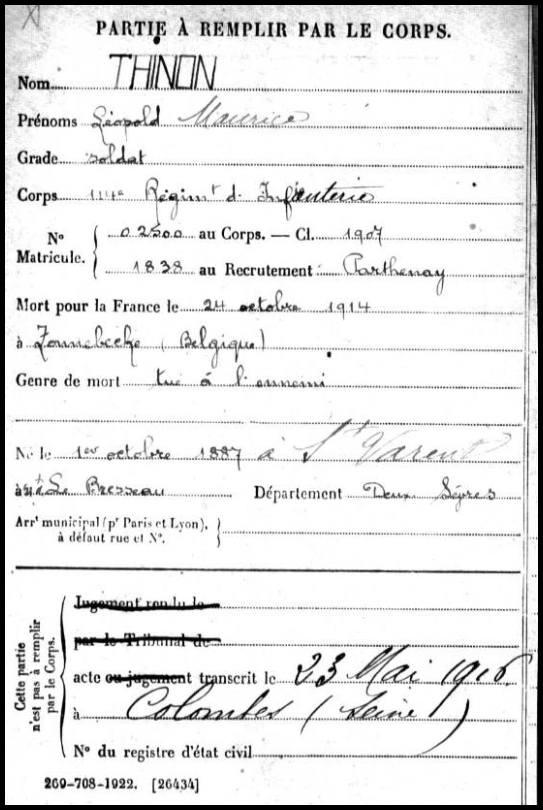 PARTIE À REMPLIR PAR LE CORPS.
Nom THINON
Prénoms Léopold Maurice
Grade soldat
Corps 114e Régimt d'Infanterie
No Matricule. 02500 au Corps. — Cl. 1907
1838 au Recrutement Parthenay
Mort pour la France le 24 octobre 1914
à Zonnebecke (Belgique)
Genre de mort tué à l'ennemi
Né le 1er octobre 1887 à St Varent
à Le Bresseau Département Deux Sèvres
Arrt municipal (pr Paris et Lyon),
à défaut rue et No.
Cette partie n'est pas à remplir par le Corps.
Jugement rendu le
par le Tribunal de
acte ou jugement transcrit le 23 Mai 1916
à Colombes (Seine)
No du registre d'état civil
269-708-1922. [26434]